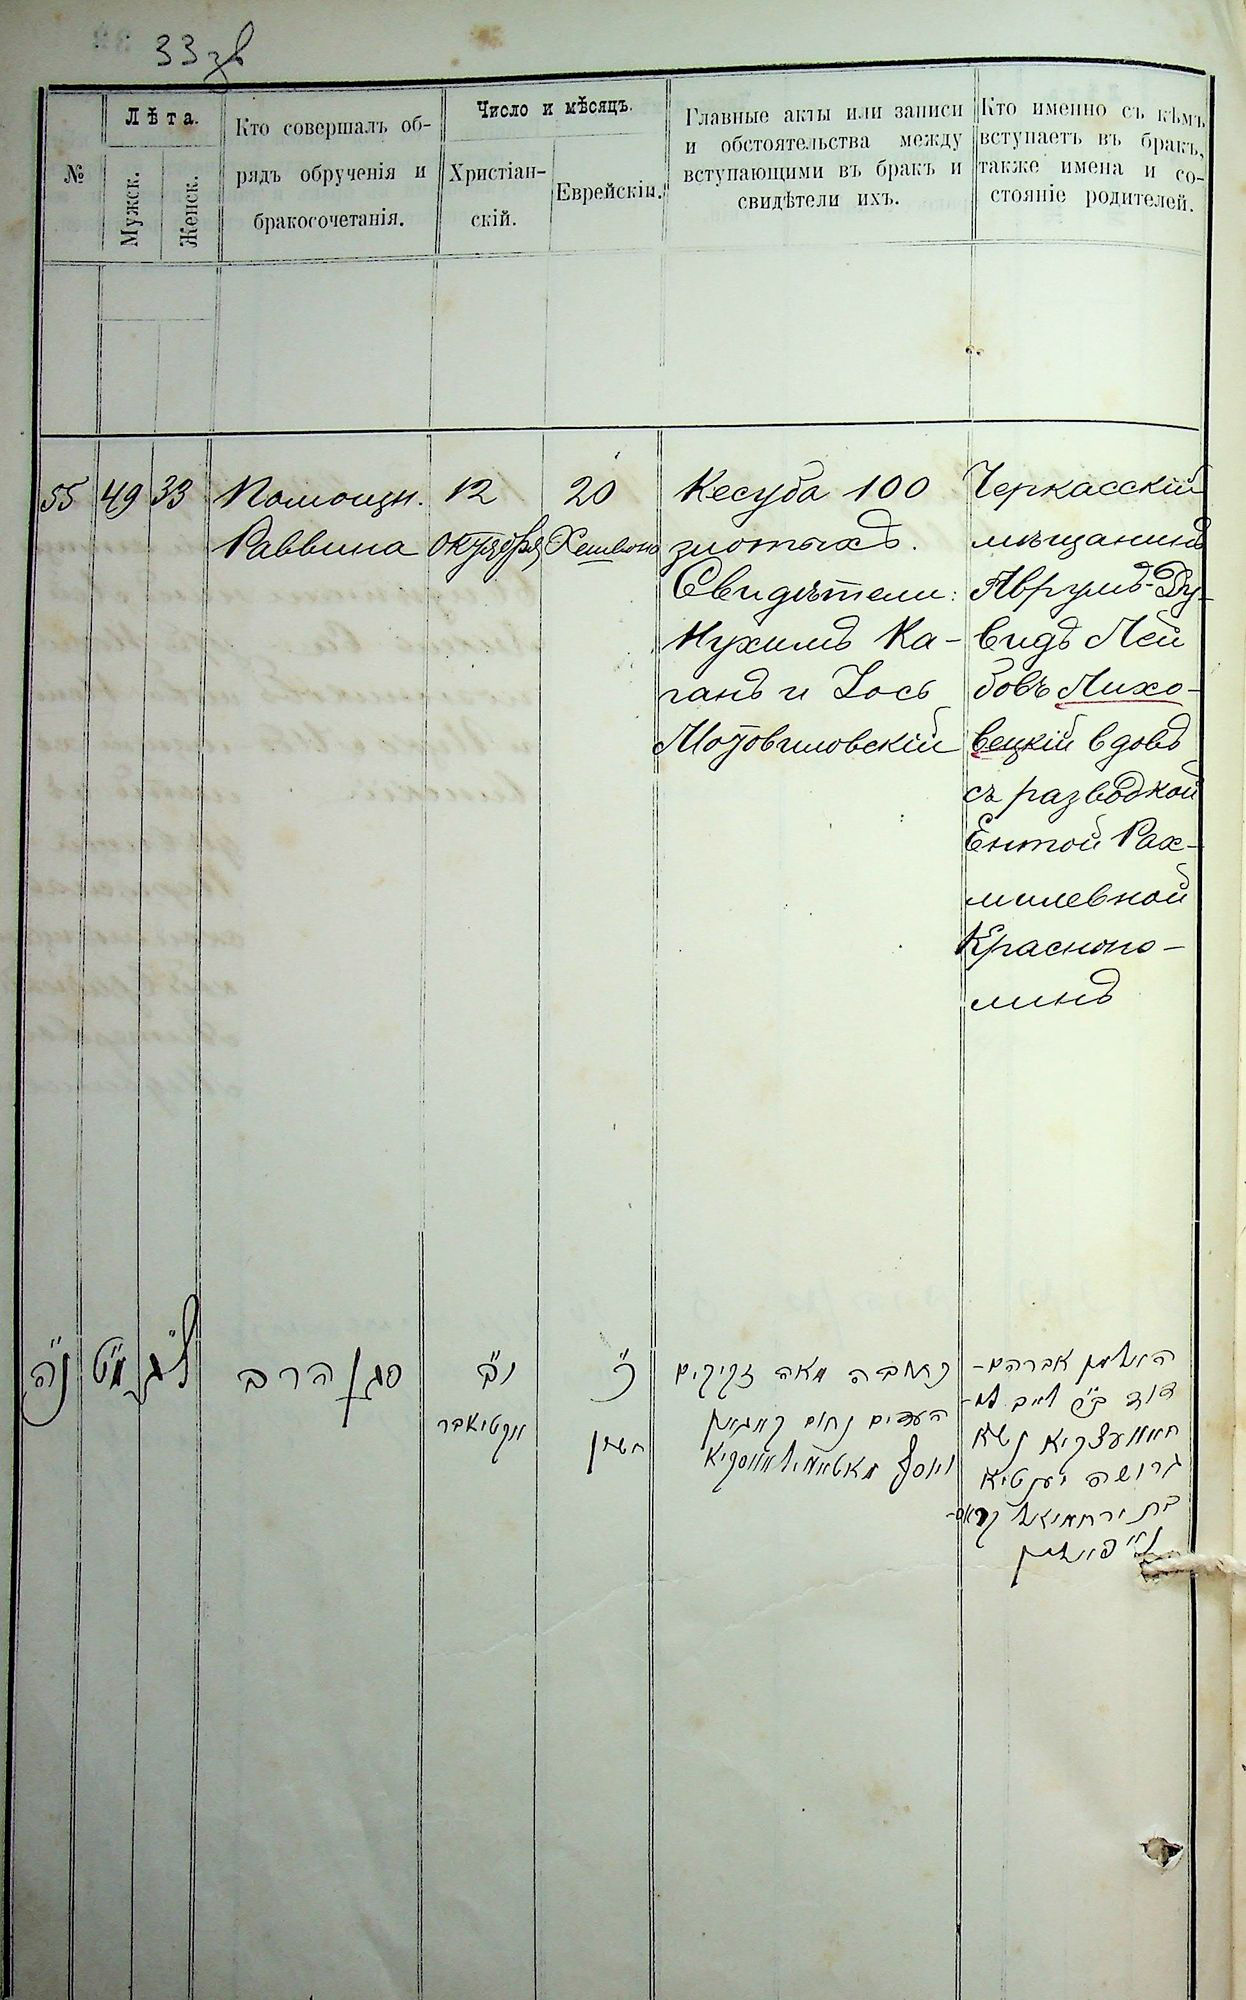 33 зв
№
Лѣта.
Мужск.
Женск.
Кто совершалъ об-
рядъ обрученія и
бракосочетанія.
Число и мѣсяцъ.
Христіан-
скій.
Еврейскій.
Главные акты или записи
и обстоятельства между
вступающими въ бракъ и
свидѣтели ихъ.
Кто именно съ кѣмъ
вступаетъ въ бракъ,
также имена и со-
стояніе родителей.
55
49
33
Помощн.
Раввина
12
октября
20
Хешвона
Кесуба 100
злотыхъ.
Свидѣтели:
Нухимъ Ка-
ганъ и Іось
Мотовиловскій
Черкасскій
мѣщанинъ
Аврумъ-Ду-
видъ Лей
бовъ Лихо-
вецкій вдовъ
съ разводкой
Ентой Рах-
милевной
Краснопо-
линъ
נ"ה
מ"ט
ל"ג
סגן הרב
י"ב
אקטיאבר
כ'
חשון
כתובה מאה זקוקים
העדים נחום קאגאן
ויוסף מאטאווילאווסקיא
אברהם-
דוד ב"ר לייב לי-
חאוועצקיא נשא
גרושה יענטיא
בת ירחמיאל קראס-